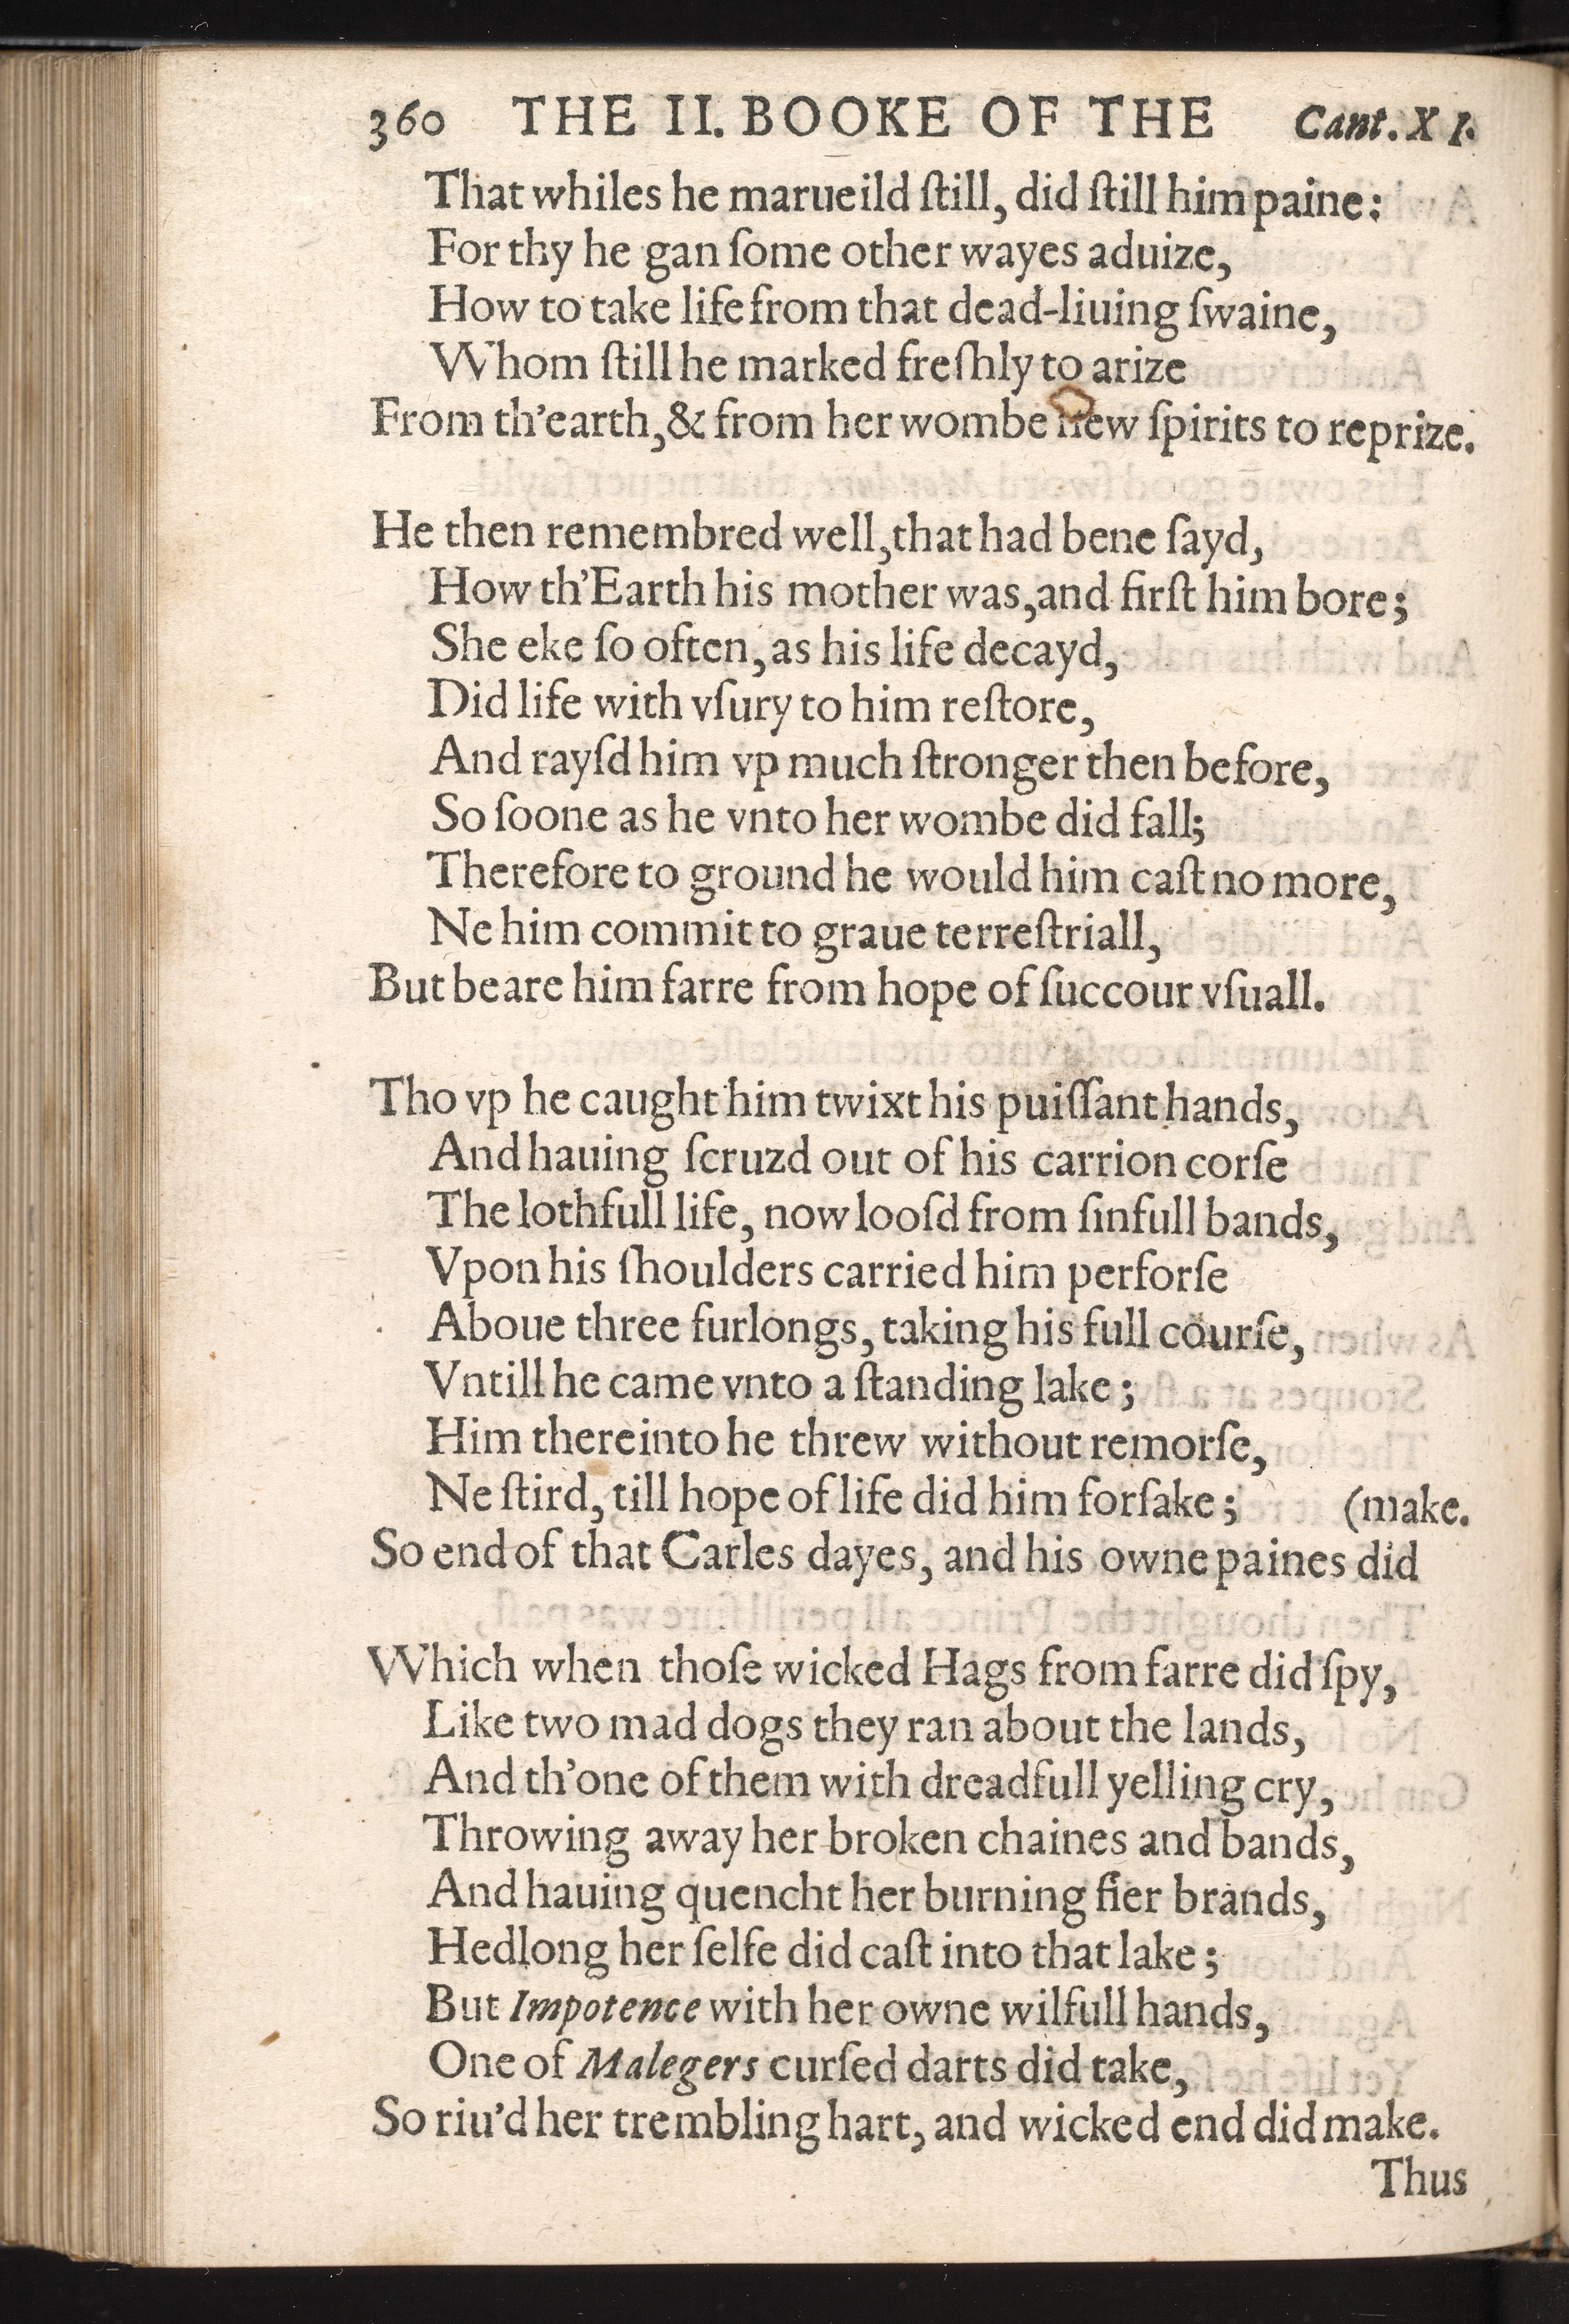 360 THE II. BOOKE OF THE Cant. XI.
That whiles he marueild ſtill, did ſtill him paine:
For thy he gan ſome other wayes aduize,
How to take life from that dead-liuing ſwaine,
Whom ſtill he marked freſhly to arize
From th'earth, & from her wombe new ſpirits to reprize.
He then remembred well, that had bene ſayd,
How th'Earth his mother was, and firſt him bore;
She eke ſo often, as his life decayd,
Did life with vſury to him reſtore,
And rayſd him vp much ſtronger then before,
So ſoone as he vnto her wombe did fall;
Therefore to ground he would him caſt no more,
Ne him commit to graue terreſtriall,
But beare him farre from hope of ſuccour vſuall.
Tho vp he caught him twixt his puiſſant hands,
And hauing ſcruzd out of his carrion corſe
The lothfull life, now looſd from ſinfull bands,
Vpon his ſhoulders carried him perforſe
Aboue three furlongs, taking his full courſe,
Vntill he came vnto a ſtanding lake;
Him thereinto he threw without remorſe,
Ne ſtird, till hope of life did him forſake; (make.
So end of that Carles dayes, and his owne paines did
Which when thoſe wicked Hags from farre did ſpy,
Like two mad dogs they ran about the lands,
And th'one of them with dreadfull yelling cry,
Throwing away her broken chaines and bands,
And hauing quencht her burning fier brands,
Hedlong her ſelfe did caſt into that lake;
But Impotence with her owne wilfull hands,
One of Malegers curſed darts did take,
So riu'd her trembling hart, and wicked end did make.
Thus